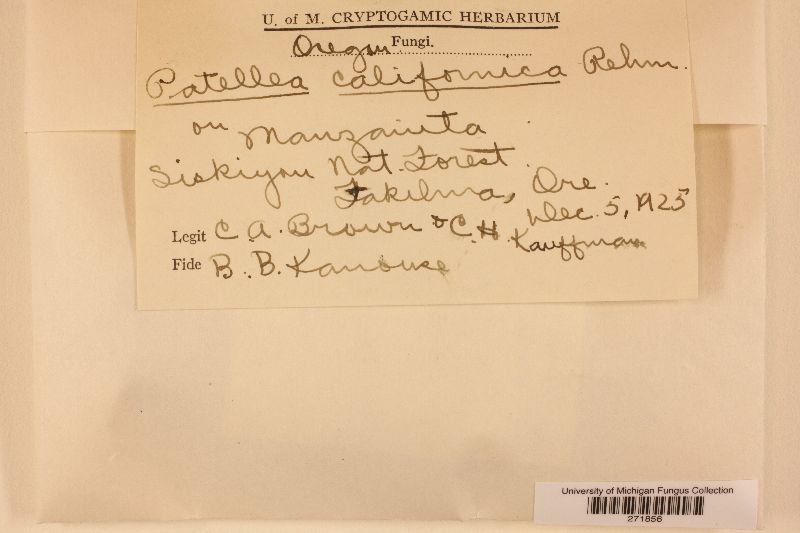 U. of M. CRYPTOGAMIC HERBARIUM
Oregon Fungi.
Patellea californica Rehm.
on Manzanita
Siskiyou Nat. Forest.
Takilma, Ore.
Dec. 5, 1925
Legit C. A. Brown & C. H. Kauffman
Fide B. B. Kanouse
University of Michigan Fungus Collection
271856